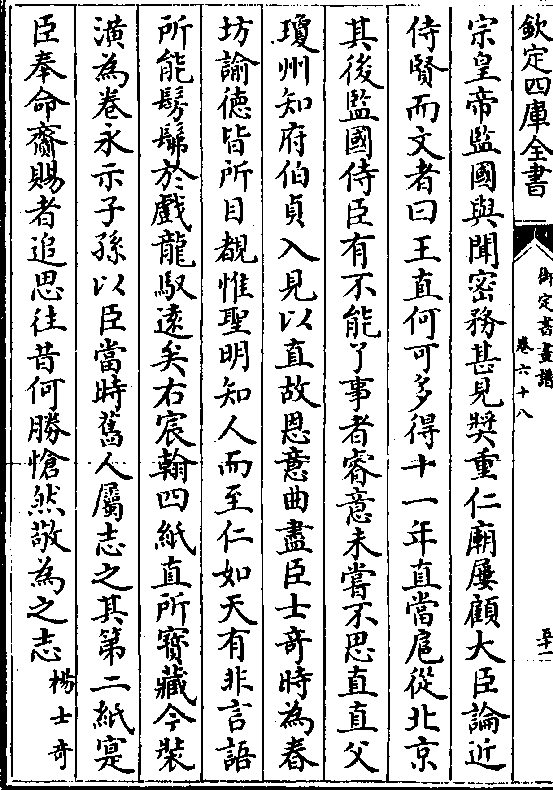 欽定四庫全書
御定書畫譜
卷六十八
宗皇帝監國與聞密務甚見奨重仁廟屢顧大臣論近
侍賢而文者曰王直何可多得十一年直當扈從北京
其後監國侍臣有不能了事者睿意未嘗不思直直父
瓊州知府伯貞入見以直故恩意曲盡臣士奇時為春
坊諭徳皆所目覩惟聖明知人而至仁如天有非言語
所能髣髴於戲龍馭遠矣右宸翰四紙直所寳藏今装
潢為卷永示子孫以臣當時舊人屬志之其第二紙寔
臣奉命齎賜者追思往昔何勝愴然敬為之志
楊士奇